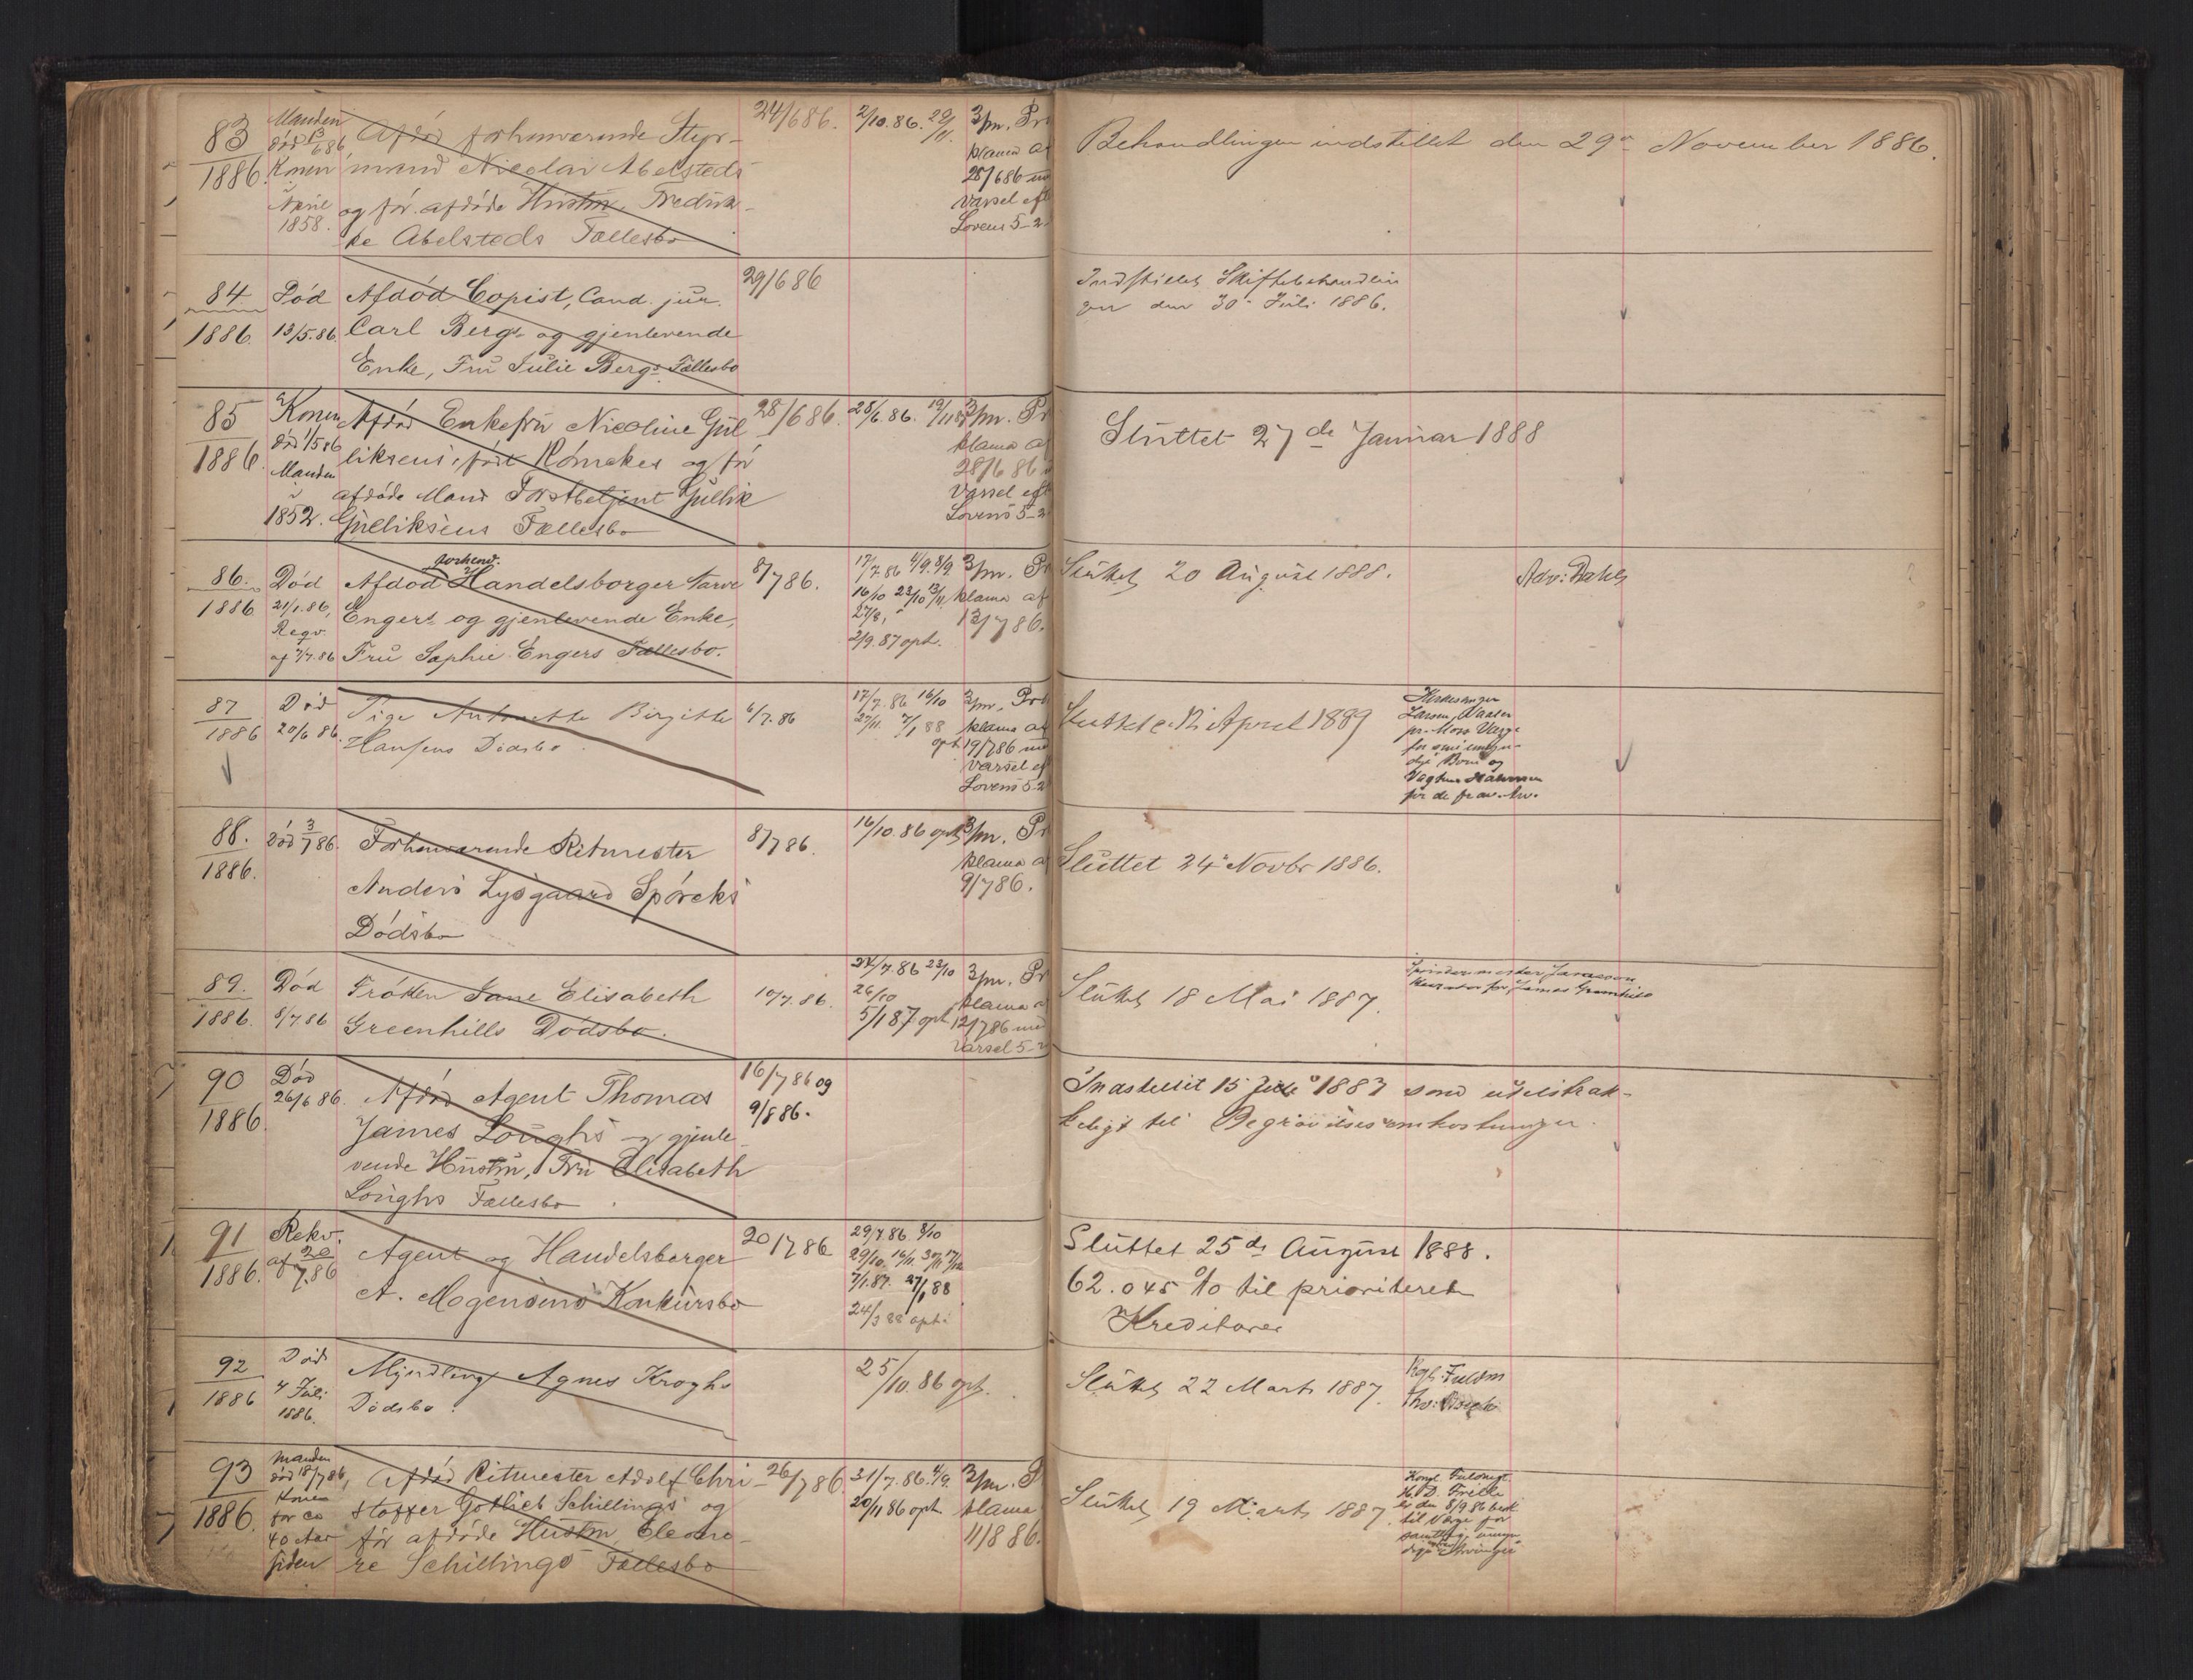 83
1886.
Manden
död 13/6 86,
Konen
i
April
1858.
Afdöd forhenværende Styr-
mand Nicolai Abelsteds
og för afdöde Hustru, Fredrik-
ke Abelsteds Fællesbo
24/6 86.
2/10. 86. 29/11.
3 m. Pr
klama af
28/6 86 m
Varsel eft
Lovens 5-2
Behandlingen indstillet den 29de November 1886.
84.
1886.
Död
13/5. 86.
Afdöd Copist, Cand. jur.
Carl Bergs og gjenlevende
Enke, Fru Julie Bergs Fællesbo
29/6 86
Indstillet Skiftebehandlin
gen den 30. Juli 1886.
85
1886.
Konen
död 1/5 86
Manden
i
1852.
Afdöd Enkefru Nicoline Gul
liksens, födt Römckes og för
afdöde Mand Toldbetjent Gullik
Gulliksens Fællesbo
28/6 86.
28/6. 86.
3 m. Pr
klama af
28/6 86
Varsel eft
Lovens 5-2
Sluttet 27de Januar 1888
86.
1886
Död
21/1. 86,
Reqv.
af 7/7. 86
forhenv.
Afdöd Handelsborger Tarve
Engers og gjenlevende Enke,
Fru Sophie Engers Fællesbo.
8/7 86.
17/7. 86 4/9. 8/9.
16/10 23/10 13/11
27/8,
2/9. 87 opt.
3 m. Pr
klama af
13/7 86.
Sluttet 20 August 1888.
Adv: Dahls
87
1886
Död
20/6 86.
Pige Antonette Birgitte
Hansens Dödsbo.
6/7. 86
17/7. 86 16/10
27/11. 7/1 88
opt
3 m. Prk
klama af
19/7 86 m
Varsel ef
Lovens 5-2
Sluttet April 1889
Kirkesanger
Larsen, Vaaler
pr. Moss Værge
for umyn-
dige Börn og
88.
1886.
död 3/7 86.
Forhenværende Ritmester
Anders Lysgaard Spörcks
Dödsbo
8/7 86.
16/10. 86 opt
3 m. Pr
klama a
9/7 86.
Sluttet 24. Novbr 1886.
89.
1886.
Död
8/7. 86
Fröken Jane Elisabeth
Greenhills Dödsbo.
10/7. 86.
24/7. 86 23/10
26/10
5/1 87 opt
3 m. Pr
klama a
12/7 86 m
Varsel 5-2
Sluttet 18 Mai 1887.
Spindemester
Kurator for James Greenhill
90
1886.
Död
26/6 86.
Afdöd Agent Thomas
James Loughs og gjenle
vende Hustru, Fru Elisabeth
Loughs Fællesbo.
16/7 86 og
9/8 86.
Indstillet 15 Juli 1887 som utilstræk-
keligt til Begravelsesomkostninger.
91
1886.
Rekv.
af 20/7. 86
Agent og Handelsborger
A. Mogensens Konkursbo
20/7 86
29/7. 86 8/10
29/10. 16/11. 30/11 17/12
7/1. 87. 27/1 88
24/3 88 opt.
Sluttet 25de August 1888.
62.045 % til prioriterede
Kreditorer
92
1886
Död
4 Juli
1886.
Myndling Agnes Kroghs
Dödsbo.
25/10. 86 opt.
Sluttet 22 Marts 1887.
Kgl. Fuldm
93
1886.
Manden
död 18/7 86,
Konen
for ca
40 Aar
siden
Afdöd Ritmester Adolf Chri-
stoffer Gotlieb Schillings og
för afdöde Hustru, Eleono-
re Schillings Fællesbo
26/7 86.
31/7. 86. 4/9.
20/11 86 opt
3 m. P
klama
11/8 86.
Sluttet 19 Marts 1887.
Kongl. Fuldmgt.
H. D. Friele
er den 8/9 86 besk
til Værge for
samtlige umyn
dige Arvinger